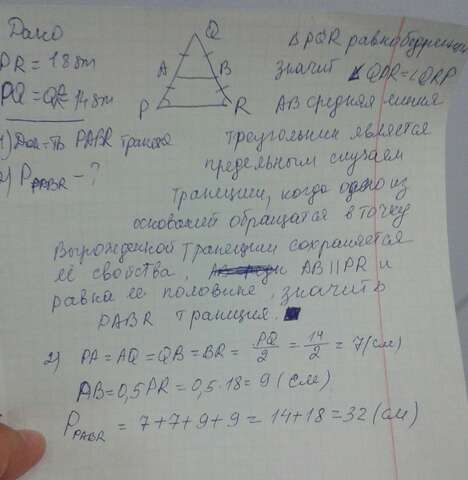 Дано
△PQR равнобедренный
PR = 18 см
значит ∠QPR = ∠QRP
PQ = QR = 14 см
AB средняя линия
Q
A
B
P
R
1) Док-ть PABR трапеция
треугольник является
2) P PABR - ?
предельным случаем
трапеции, когда одно из
оснований обращается в точку
Вырожденной трапеции сохраняется
её свойства, AB || PR и
равна её половине, значить
PABR трапеция.
2) PA = AQ = QB = BR = PQ/2 = 14/2 = 7 (см)
AB = 0,5 PR = 0,5 · 18 = 9 (см)
P PABR = 7 + 7 + 9 + 9 = 14 + 18 = 32 (см)